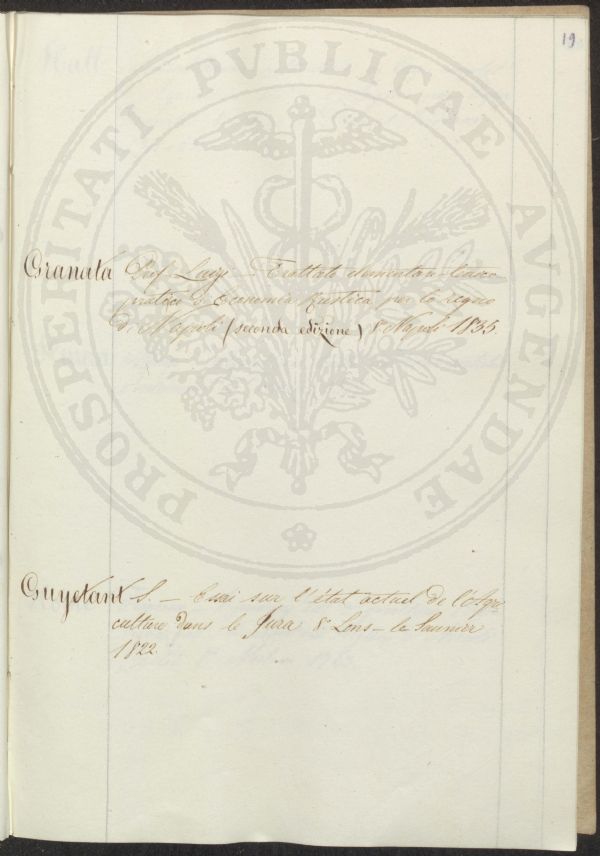 19
PROSPERITATI PVBLICAE AVGENDAE
Granata Prof. Luigi – Trattato elementare teorico
pratico di Economia Rustica per lo regno
di Napoli (seconda edizione) 8° Napoli 1835.
Guyetant S. – Essai sur l'état actuel de l'Agri
culture dans le Jura 8° Lons-le Saunier
1822